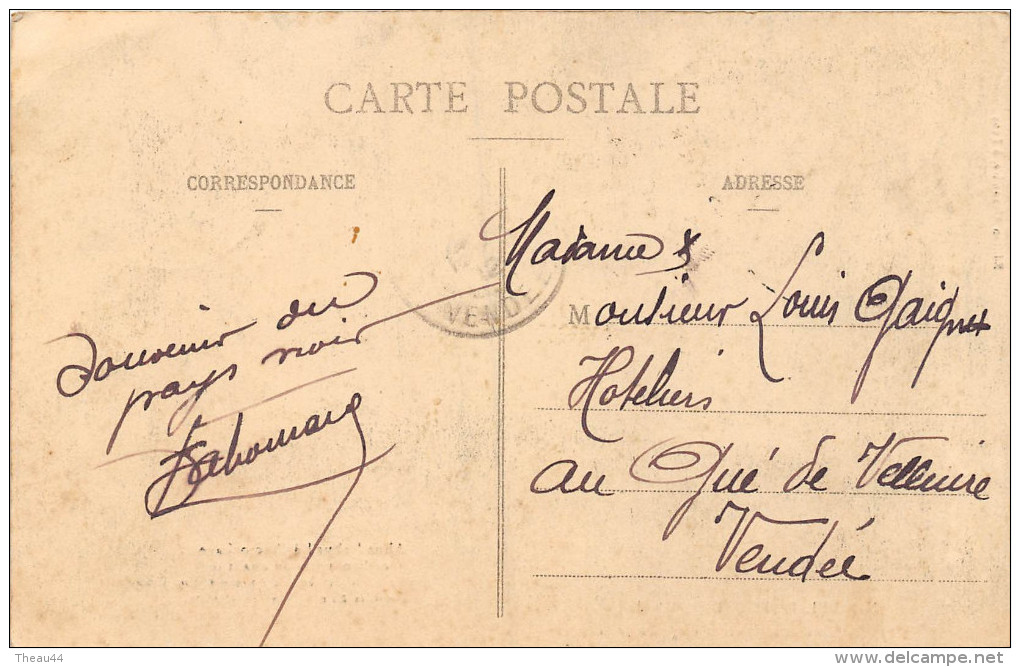 CARTE POSTALE
CORRESPONDANCE
ADRESSE
Souvenir du
pays noir
VENDÉE
Madame &
Monsieur Louis Gaignet
Hoteliers
au Gué de Velluire
Vendée
Theau44
www.delcampe.net